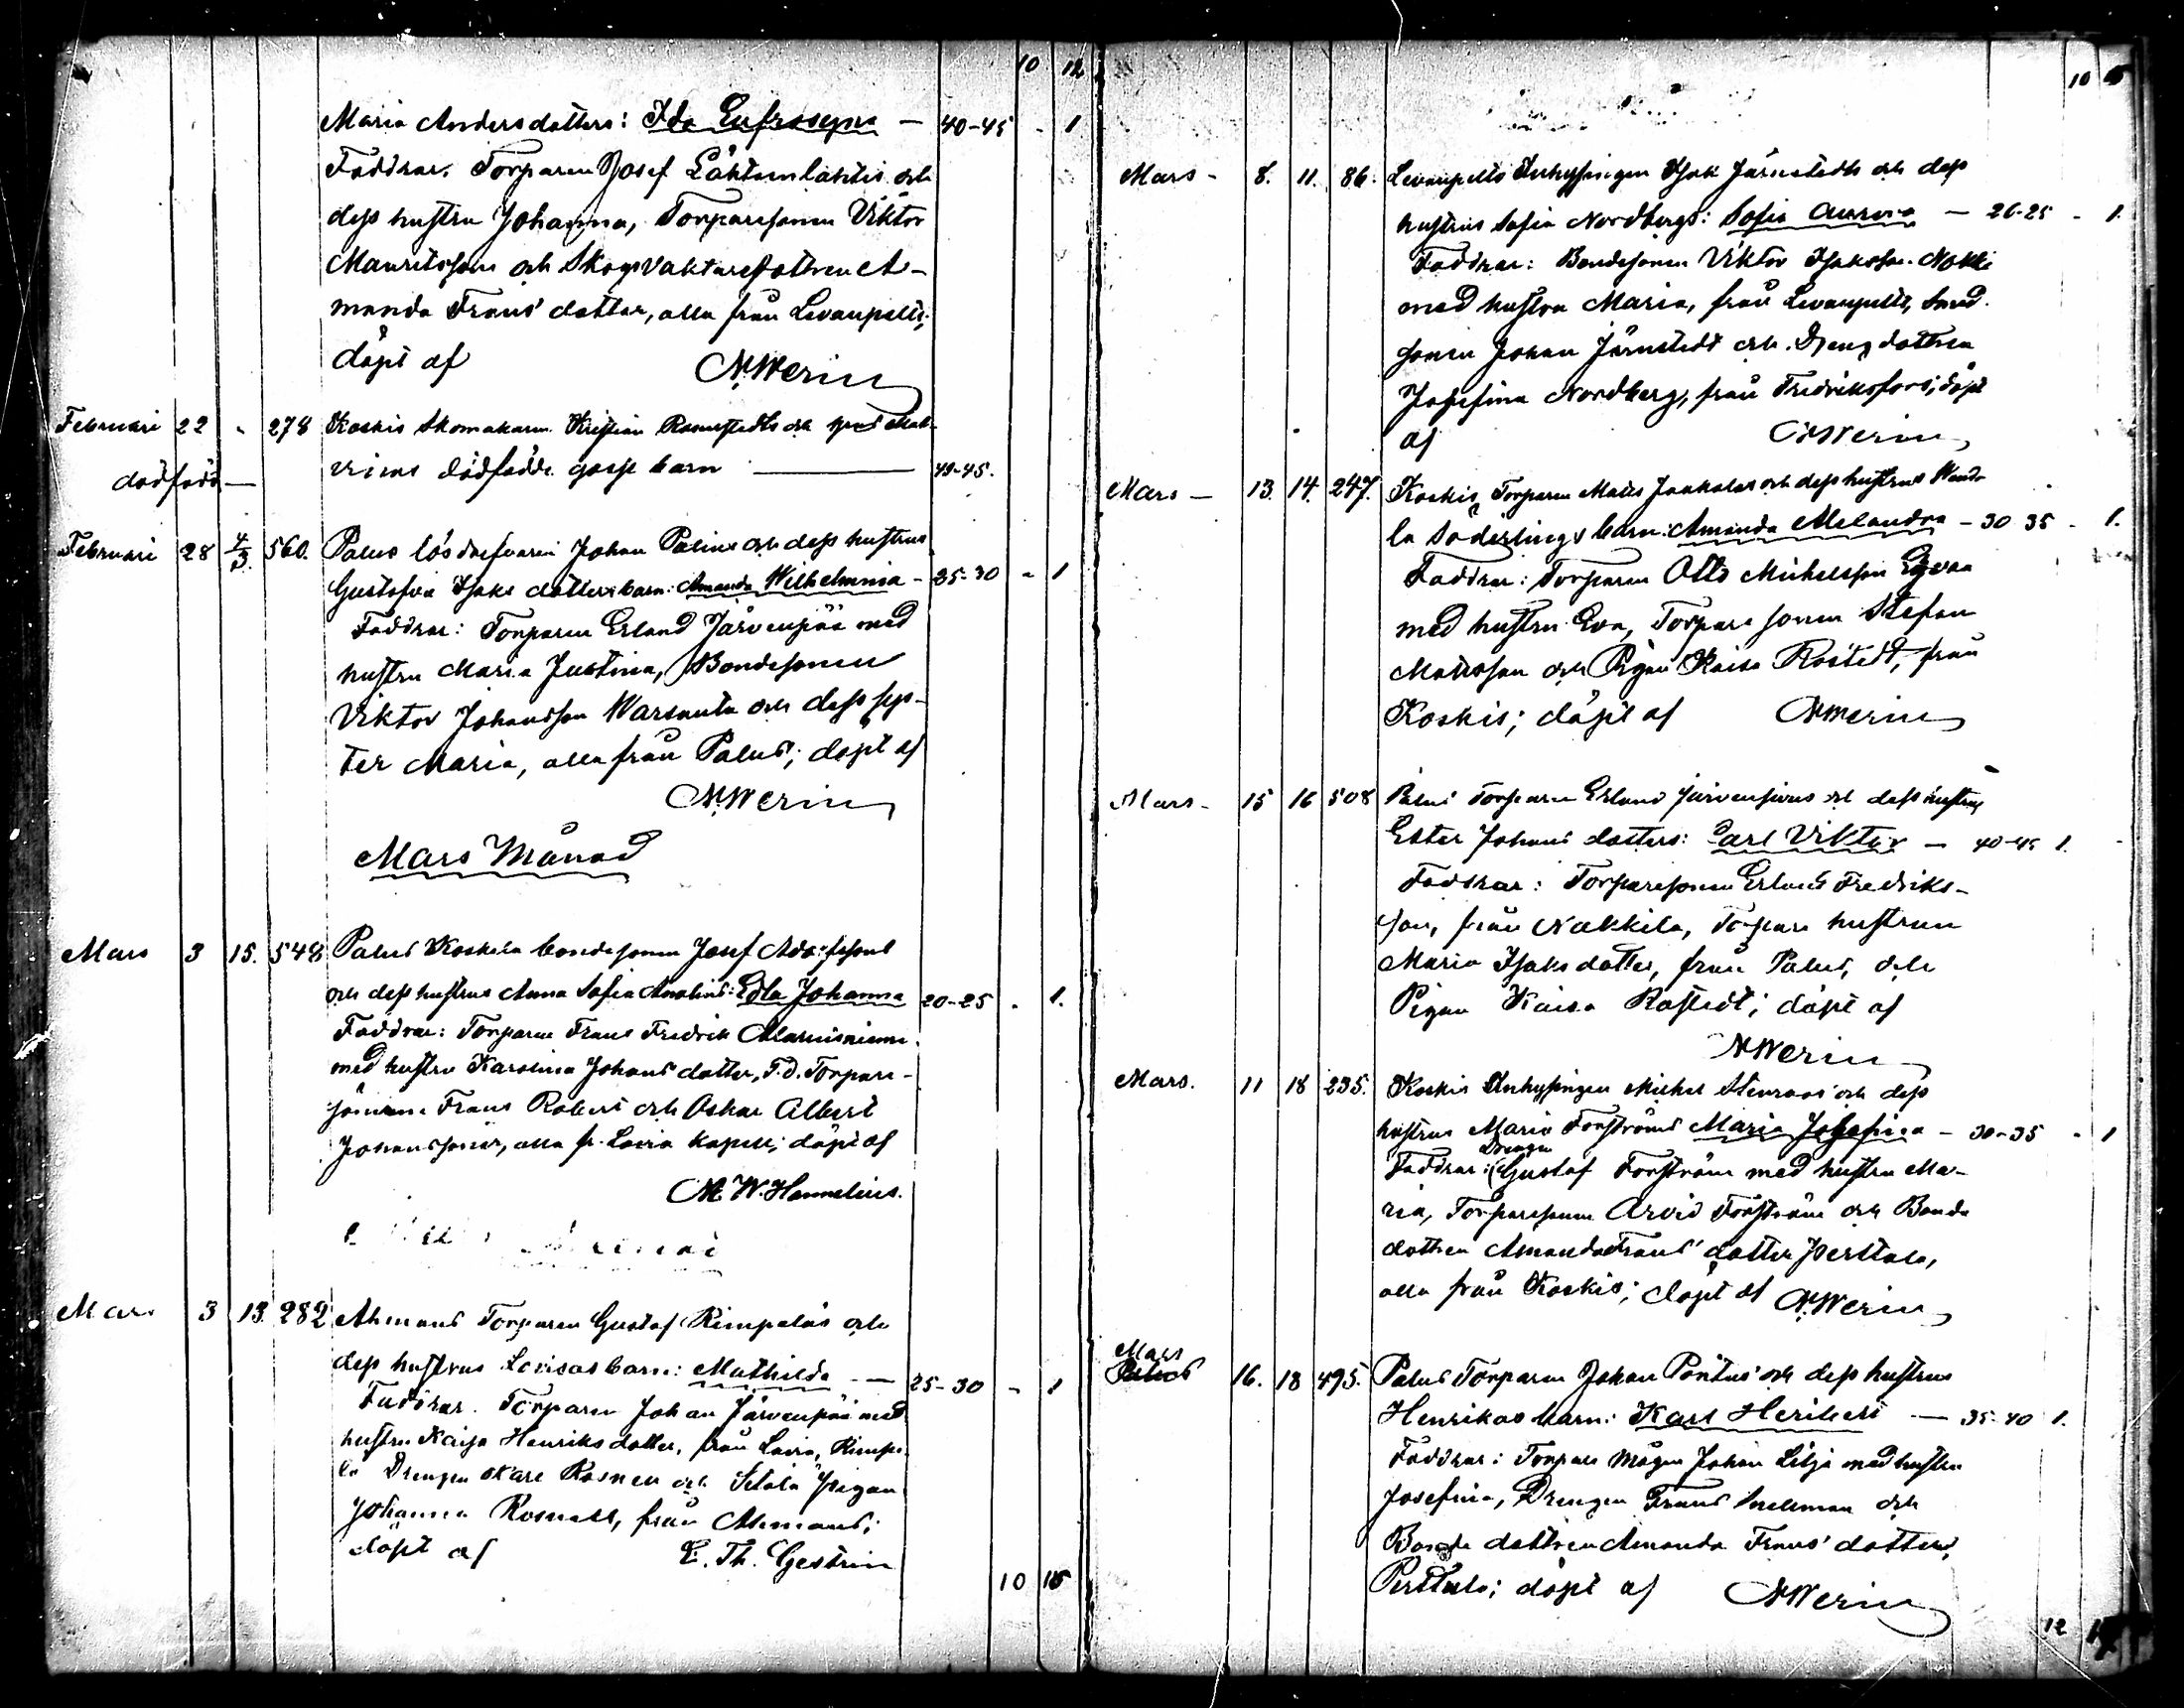 10 12
Maria Andersdotters: Ida Eufrosyna — 40-45 - 1
Faddrar. Torparen Josef Lähteenlahtis och
dess hustru Johanna, Torparesonen Viktor
Mauritsson och Skogsvaktaredottren A-
manda Frans' dotter, alla från Levanpelto;
döpt af N. Werin
Februari 22 - 278 Koskis Skomakaren Kristian och
dödfödd — dödfödde gosse barn — 49-45.
Februari 28 4/3 560. Palus lösdrefvaren Johan och dess hustrus
Gustafva Isaks dotters barn: Amanda Wilhelmina - 25-30 - 1
Faddrar: Torparen Erland Järvenpää med
hustru Maria Justina, Bondesonen
Viktor Johansson Warsanta och dess sys-
ter Maria, alla från Palus; döpt af
N. Werin
Mars Månad
Mars 3 15. 548 Palus Koskela bondesonen Josef Adolfssons
och dess hustrus Anna Sofia: Edla Johanna 20-25 - 1.
Faddrar: Torparen Frans Fredrik
med hustru Karolina Johans dotter, T.d. Torpare-
sönerne Frans Robert och Oskar Albert
Johanssöner, alla fr. Lavia kapell; döpt af
M. W. Hannelius.
Mars 3 13. 282 Ahmaus Torparen Gustaf Rimpeläs och
dess hustrus Lovisas barn: Mathilda — 25-30 - 1
Faddrar. Torparen Johan Järvenpää med
hustru Kaisa Henriks dotter, från Lavia, Rimpe-
lä Drengen Karl Rosnell och Setälä pigan
Johanna Rosnell, från Ahmaus;
döpt af E. Th. Gestrin
10 15
10 15
Mars - 8. 11. 86. Levanpelto Inhysingen Isak Järnstedts och dess
hustrus Sofia Nordbergs: Sofia Aurora — 26-25 - 1.
Faddrar: Bondesonen Viktor Isaksson Nokki
med hustru Maria, från Levanpelto, Smed-
sonen Johan Järnstedt och Drengdottren
Josefina Nordberg, från Fredriksfors; döpt
af N. Werin
Mars — 13. 14. 247. Koskis Torparen Matts Jaakolas och dess hustrus Wende-
la Söderlings barn: Amanda Melandra - 30 35 - 1.
Faddrar: Torparen Otto Michelsson
med hustru Eva, Torparesonen Stefan
Matsson och Pigan Kaisa Rostedt, från
Koskis; döpt af N. Werin
Mars - 15 16 508 Palus Torparen Erland Järvensivus och dess hustrus
Ester Johans dotters: Carl Viktor — 40-45 1. -
Faddrar: Torparesonen Erland Fredriks-
son, från Nakkila, Torpare hustrun
Maria Isaks dotter, från Palus, och
Pigan Kaisa Rostedt; döpt af
N. Werin
Mars. 11 18 235. Koskis Inhysingen Michel Stenroos' och dess
hustrus Maria Forströms Maria Josefina — 30-35 - 1
Faddrar: Drengen Gustaf Forström med hustru Ma-
ria, Torparesonen Arvid Forström och Bonde
dottren Amanda Frans' dotter Perttula,
alla från Koskis; döpt af N. Werin
Mars
Palus 16. 18 495. Palus Torparen Johan Pontus' och dess hustrus
Henrikas barn: Karl Heribert — 35-40 1.
Faddrar: Torpare mågen Johan Lilja med hustru
Josefina, Drengen Frans Snellman och
Bonde dottren Amanda Frans' dotter
Perttula; döpt af N. Werin
12